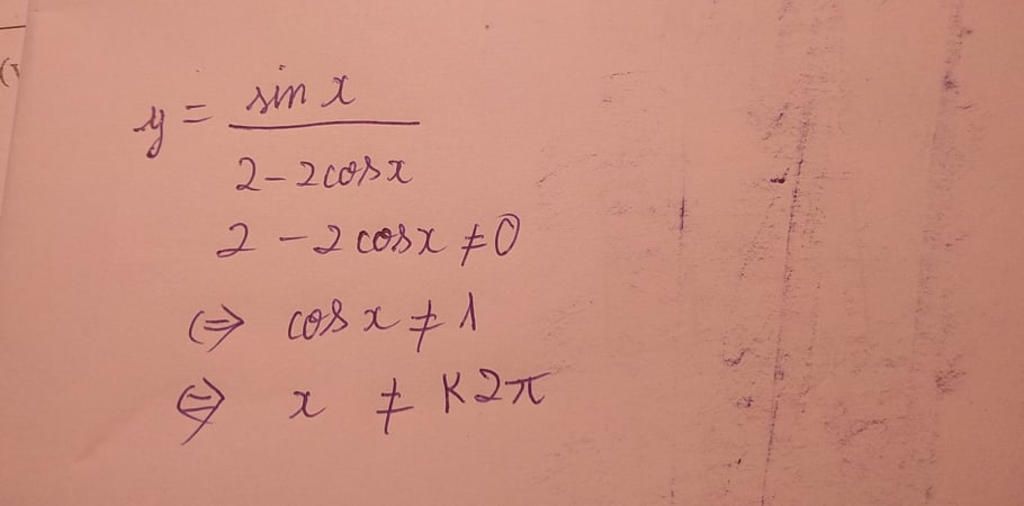 y = sin x / 2 - 2cosx
2 - 2cosx ≠ 0
⇔ cosx ≠ 1
⇔ x ≠ k2π